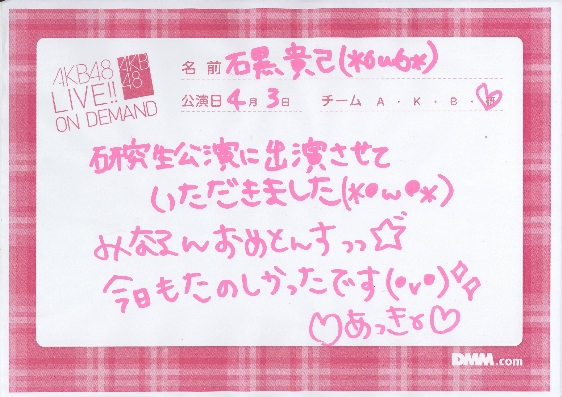 AKB48
LIVE!!
ON DEMAND
AKB
48
名前 石黒貴己(*óωò*)
公演日 4月 3日 チーム A・K・B・研
研究生公演に出演させて
いただきました(*•ω•*)
みなるんおめとんすっっ☆
今日もたのしかったです(•v•)
♡あっきゃ♡
DMM.com